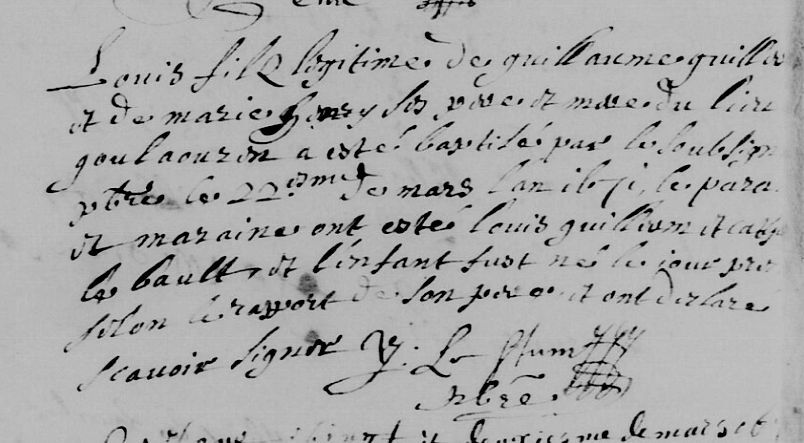 Louis filz legitime de guillaume guillo
et de marie henry ses pere et mere du lieu
goulaouren a esté baptisé par le soubsign
pbre le 22esme de mars lan 1671, le para
et maraine ont esté louis guilliem et cath
le bault, et l'enfant fust né le jour pre
selon le rapport de son pere et ont declaré
scavoir signer Le
pbre
de mars